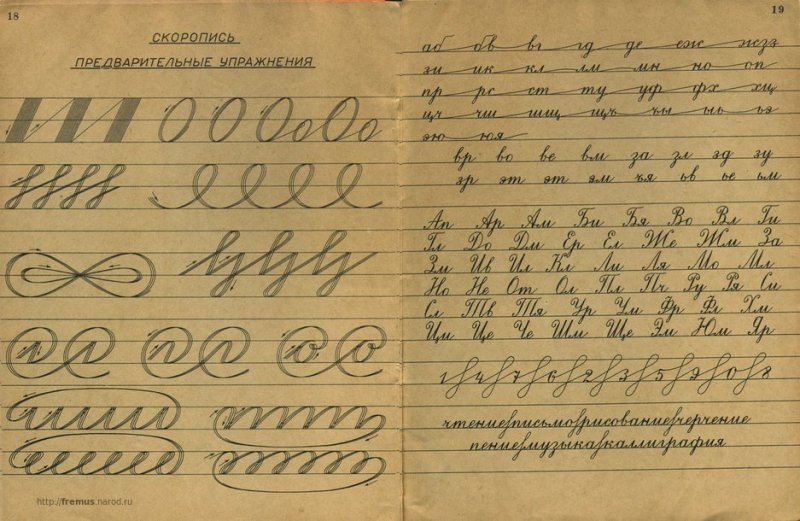 18
СКОРОПИСЬ
ПРЕДВАРИТЕЛЬНЫЕ УПРАЖНЕНИЯ
http://fremus.narod.ru
19
аб бв вг гд де еж жзз
зи ик кл лм мн но оп
пр рс ст ту уф фх хц
цч чш шщ щъ ъы ыь ьэ
эю юя
вр во ве вм за зл зд зу
зр эт эт эм ъя ьв ье ьм
Ап Ар Ам Би Бя Во Вл Ги
Гл До Дм Ер Ел Же Жм За
Зм Ив Ил Кл Ли Ля Мо Мл
Но Не От Ол Пл Пч Ру Ря Си
Сл Тв Тя Ур Ум Фр Фл Хм
Ци Це Че Шм Ще Эм Юм Яр
1 4 7 6 2 3 5 9 0 8
чтение письмо рисование черчение
пение музыка каллиграфия